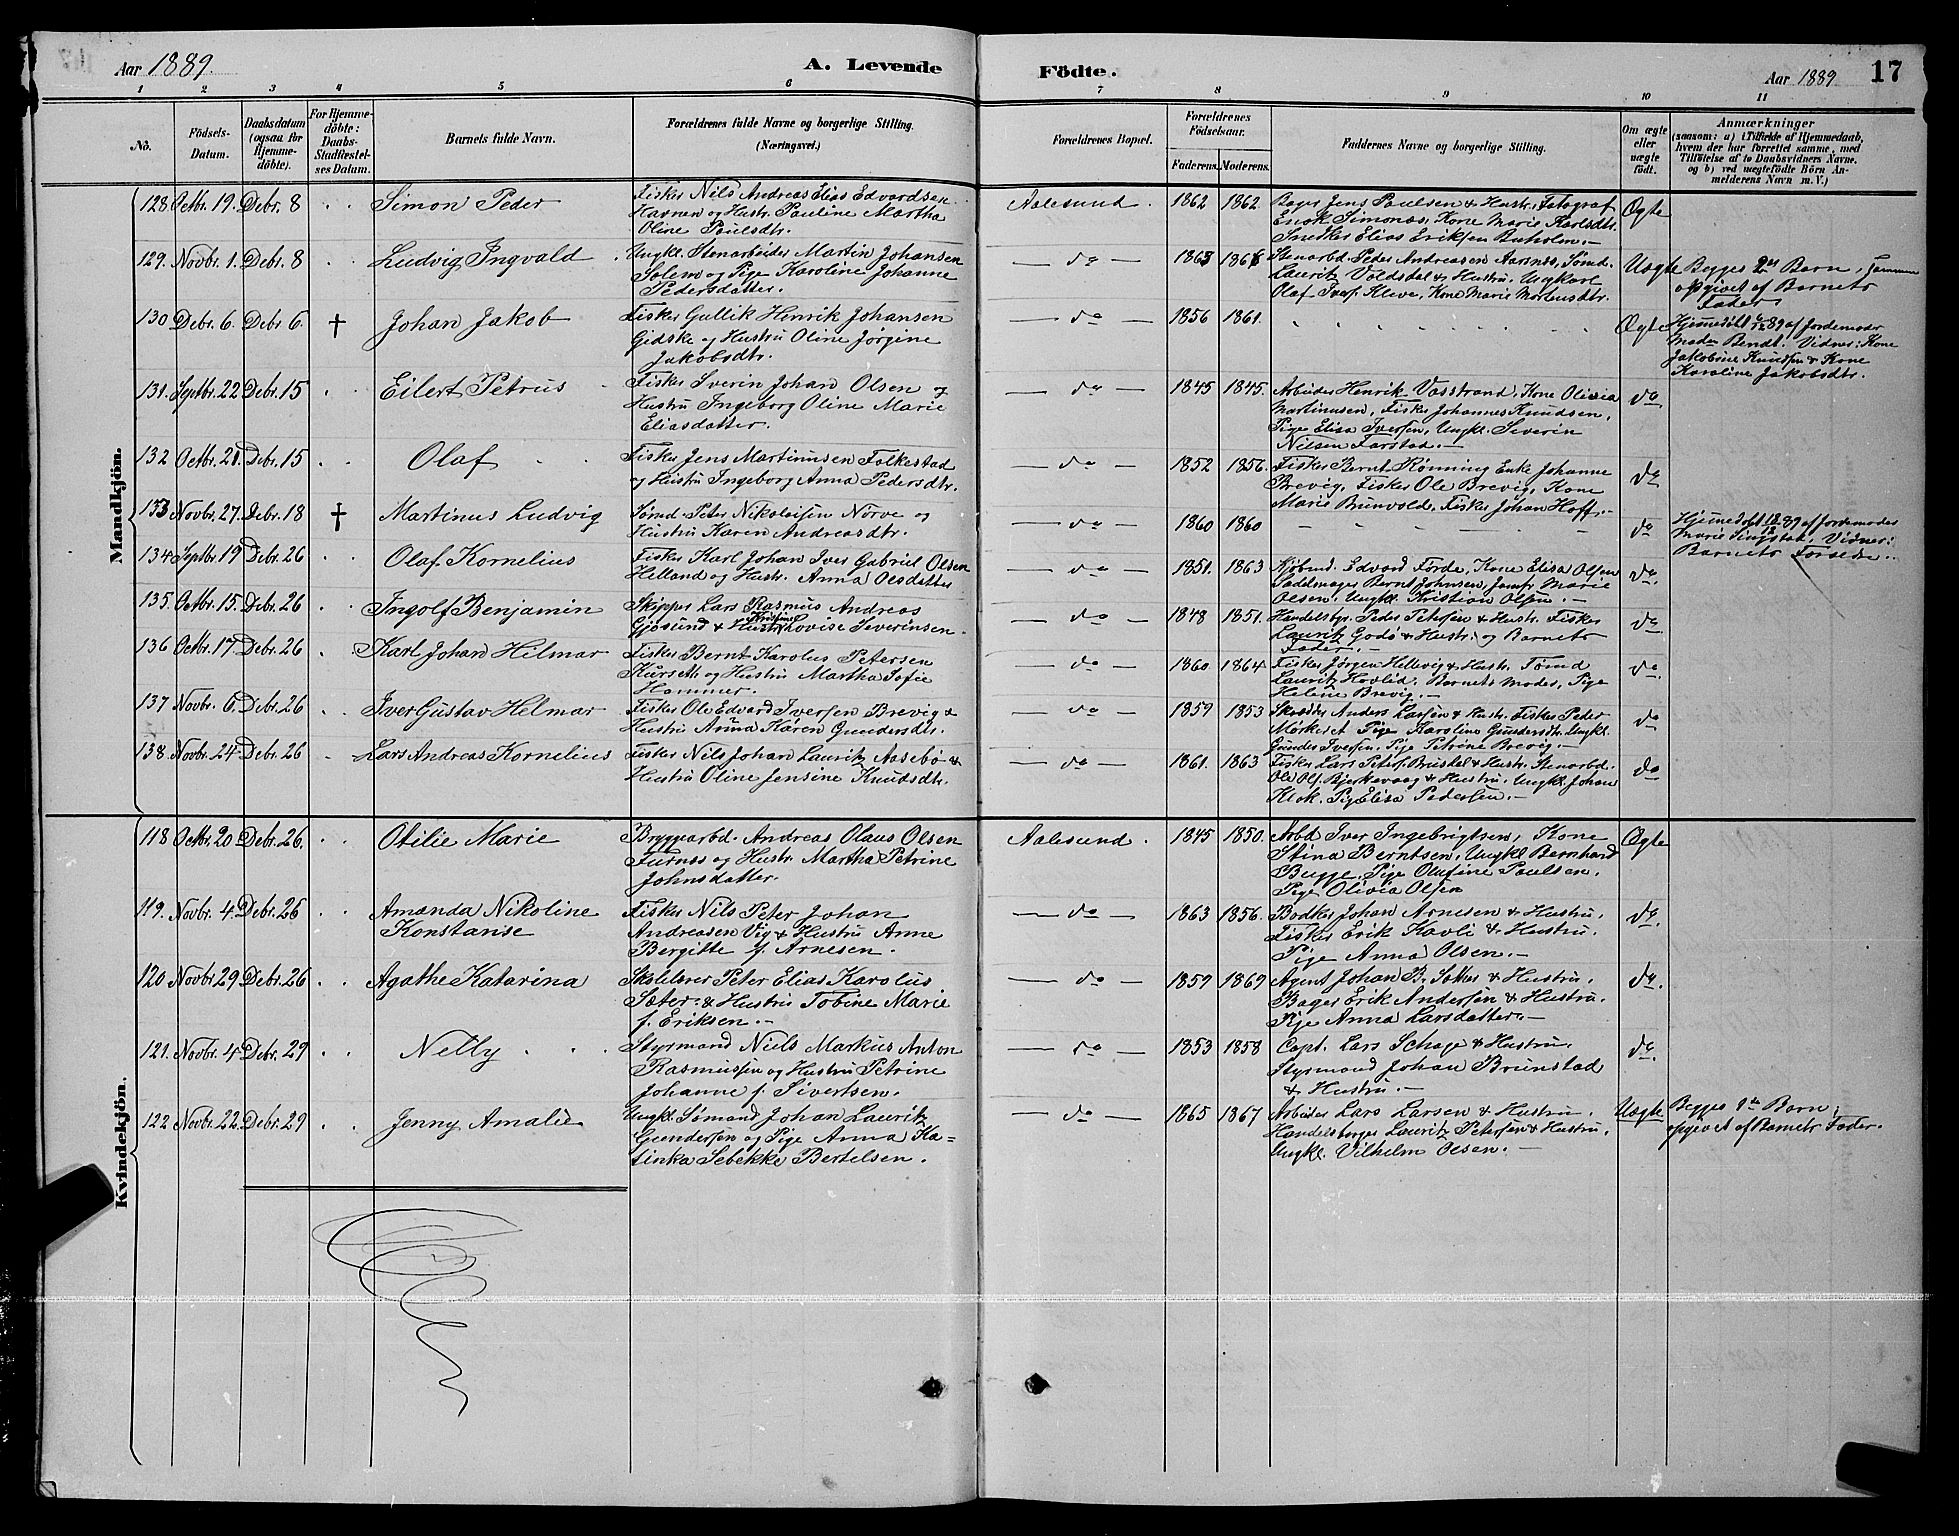 Aar 1889.
A. Levende
Födte.
Aar 1889
17
1 2 3 4 5 6 7 8 9 10 11
No.
Födsels-
Datum.
Daabsdatum
(ogsaa for
Hjemme-
döbte).
For Hjemme-
döbte:
Daabs-
Stadfæstel-
ses Datum.
Barnets fulde Navn.
Forældrenes fulde Navne og borgerlige Stilling.
(Næringsvei.)
Forældrenes Bopæl.
Forældrenes
Födselsaar.
Faderens. Moderens.
Faddernes Navne og borgerlige Stilling.
Om ægte
eller
uægte
født.
Anmærkninger
(saasom: a) i Tilfælde af Hjemmedaab,
hvem der har forrettet samme, med
Tilföielse af to Daabsvidners Navne.
og b) ved uægtefödte Börn An-
melderens Navn m. V.)
Mandkjön.
128 Octbr. 19. Debr. 8 Simon Peder
Fisker Nils Andreas Elias Edvardsen
Havnen og Hustr. Pauline Martha
Oline Paulsdtr.
Aalesund. 1862 1862
Bager Jens Paulsen & Hustr. Fotograf
Enok Simonæs, Kone Marie Karlsdtr.
Snedker Elias Eriksen Buholm.—
Ægte
129. Novbr. 1. Debr. 8 Ludvig Ingvald
Ungkl. Stenarbeider Martin Johansen
Solem og Pige Karoline Johanne
Pedersdatter.
— do — 1863 1866
Stenarbd. Peder Andreasen Aarsnes, Sømd.
Lauritz Voldsdal & Hustru. Ungkarl
Olaf Ivers. Kleve, Kone Marie Mortensdtr.
Uægte
Begges 2det Barn,
opgivet af Barnets
Fader
130 Debr. 6. Debr. 6 † Johan Jakob
Fisker Gullik Henrik Johansen
Gidske og Hustru Oline Jørgine
Jakobsdtr.
— do — 1856 1861.
Ægte
Hjemmedøbt 6/12 89 af Jordemoder
Madm Bendt. Vidner: Kone
Jakobine Knudsen & Kone
Karoline Jakobsdtr.
131. Septbr. 22 Debr. 15 Eilert Petrus
Fisker Sverin Johan Olsen og
Hustru Ingeborg Oline Marie
Eliasdatter.
— do — 1845 1845.
Arbeider Henrik Vasstrand, Kone Olivia
Martinusen, Fisker Johannes Knudsen,
Pige Elisa Iversen, Ungkl. Severin
Nilsen Farstad.—
do
132 Octbr. 21. Debr. 15 Olaf
Fisker Jens Martinusen Folkestad
og Hustru Ingeborg Anna Pedersdtr.
— do — 1852 1856.
Fisker Bernt Rønning Enke Johanne
Brevig, Fisker Ole Brevig, Kone
Marie Brunvold, Fisker Johan Hoff.—
do
133 Novbr. 27. Debr. 18 † Martinus Ludvig
Sømd. Peter Nikolaisen Nørve og
Hustru Karen Andreasdtr.
— do — 1860 1860
do
Hjemmedøbt 18/12 89 af Jordemoder
Marie Tingstad, Vidner:
Barnets Forældre.
134 Septbr. 19 Debr. 26 Olaf Kornelius
Fisker Karl Johan Iver Gabriel Olsen
Helland og Hustr. Anna Olsdatter
— do — 1851. 1863
Kjøbmd. Edvard Førde, Kone Elisa Olsen
Sadelmager Bernt Johnsen, Jomfr. Marie
Olsen. Ungkl. Kristian Olsen.—
do.
135. Octbr. 15. Debr. 26 Ingolf Benjamin
Skipper Lars Rasmus Andreas
Gjøsund & Hustr. Kristine Lovise Severinsen.
— do — 1848 1851.
Handelsbgr. Peder Petersen & Hustr. Fisker
Lauritz Godø & Hustr. og Barnets
Fader.—
do
136 Octbr. 17 Debr. 26 Karl Johan Hilmar
Fisker Bernt Karolus Petersen
Kurseth og Hustru Martha Sofie
Hammer.
— do — 1860 1864
Fisker Jørgen Hellevig & Hustr. Tømd
Lauritz Hovlid. Barnets Moder, Pige
Helene Brevig.—
do.
137 Novbr. 6. Debr. 26 Iver Gustav Helmar
Fisker Ole Edvard Iversen Brevig &
Hustru Anna Karen Gundersdtr.
— do — 1859 1853
Skrædder Anders Larsen & Hustr. Fisker Peter
Morkeset Pige Karoline Gundersdtr. Ungkl.
Gunder Iversen. Pige Petrine Brevig.—
do
138. Novbr. 24 Debr. 26 Lars Andreas Kornelius
Fisker Nils Johan Lauritz Aasebø &
Hustru Oline Jensine Knudsdtr.
— do — 1861. 1863
Fisker Lars Peters. Brusdal & Hustr. Stenarbd.
Ole Ols. Bjerkevaag & Hustru. Ungkl. Johan
Klok. Pige Elisa Pedersen.—
do
Kvindekjön.
118 Octbr. 20 Debr. 26. Otilie Marie
Bryggearbd. Andreas Olaus Olsen
Furnes og Hustr. Martha Petrine
Johnsdatter.
Aalesund. 1845 1850.
Arbd Iver Ingebrigtsen, Kone
Stina Berntsen, Ungkl Bernhard
Bugge. Pige Olufine Paulsen.
Pige Olivia Olsen
Ægte
119. Novbr. 4. Debr. 26 Amanda Nikoline
Konstanse
Fisker Nils Peter Johan
Andreasen Vig & Hustru Anne
Bergitte f. Arnesen.
— do — 1863 1856.
Bødker Johan Arnesen & Hustru.
Fisker Erik Havli & Hustru.
Pige Anna Olsen.—
do.
120 Novbr. 29 Debr. 26 Agathe Katarina
Skolelærer Peter Elias Karolus
Sæter & Hustru Tobine Marie
f. Eriksen.—
— do — 1859 1869
Agent Johan B. Sætter & Hustru,
Bager Erik Andersen & Hustru.
Pige Anna Larsdatter.—
do.
121. Novbr. 4. Debr. 29 Nelly
Styrmand Niels Markus Anton
Rasmussen og Hustru Petrine
Johanne f. Sivertsen.
— do — 1853 1858
Capt. Lars Schage & Hustru.
Styrmand Johan Brunstad
& Hustru.—
do.
122 Novbr. 22. Debr. 29 Jenny Amalie
Ungkl. Sømand Johan Lauritz
Gundersen og Pige Anna Ka-
tinka Sebekke Bertelsen.
— do — 1865 1867
Arbeider Lars Larsen & Hustru.
Handelsborger Lauritz Petersen & Hustru.
Ungkl. Vilhelm Olsen.—
Uægte
Begges 1ste Barn,
opgivet af Barnets Fader.